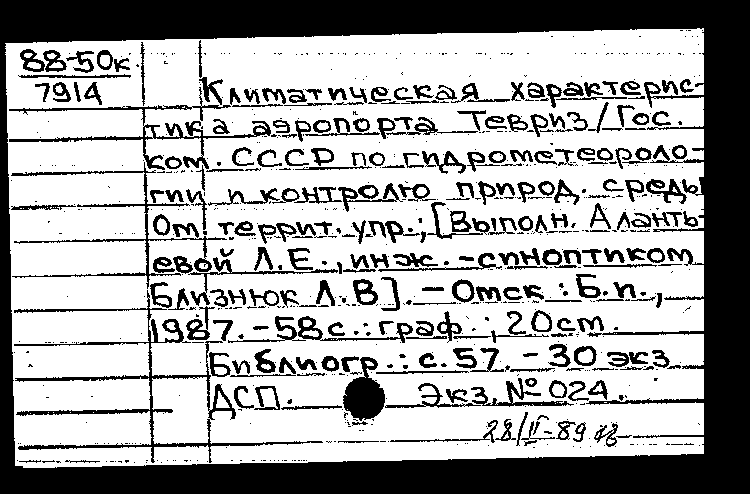 88-50к
7914
Климатическая характерис-
тика аэропорта Тевриз/Гос.
ком. СССР по гидрометеороло-
гии и контролю природ. среды
Ом. террит. упр.; [Выполн. Аланть-
евой Л.Е., инж.-синоптиком
Близнюк Л.В]. - Омск : Б.и.,
1987. - 58 с. : граф. ; 20 см.
Библиогр.: с. 57. - 30 экз
ДСП. Экз. № 024.
28/II-89